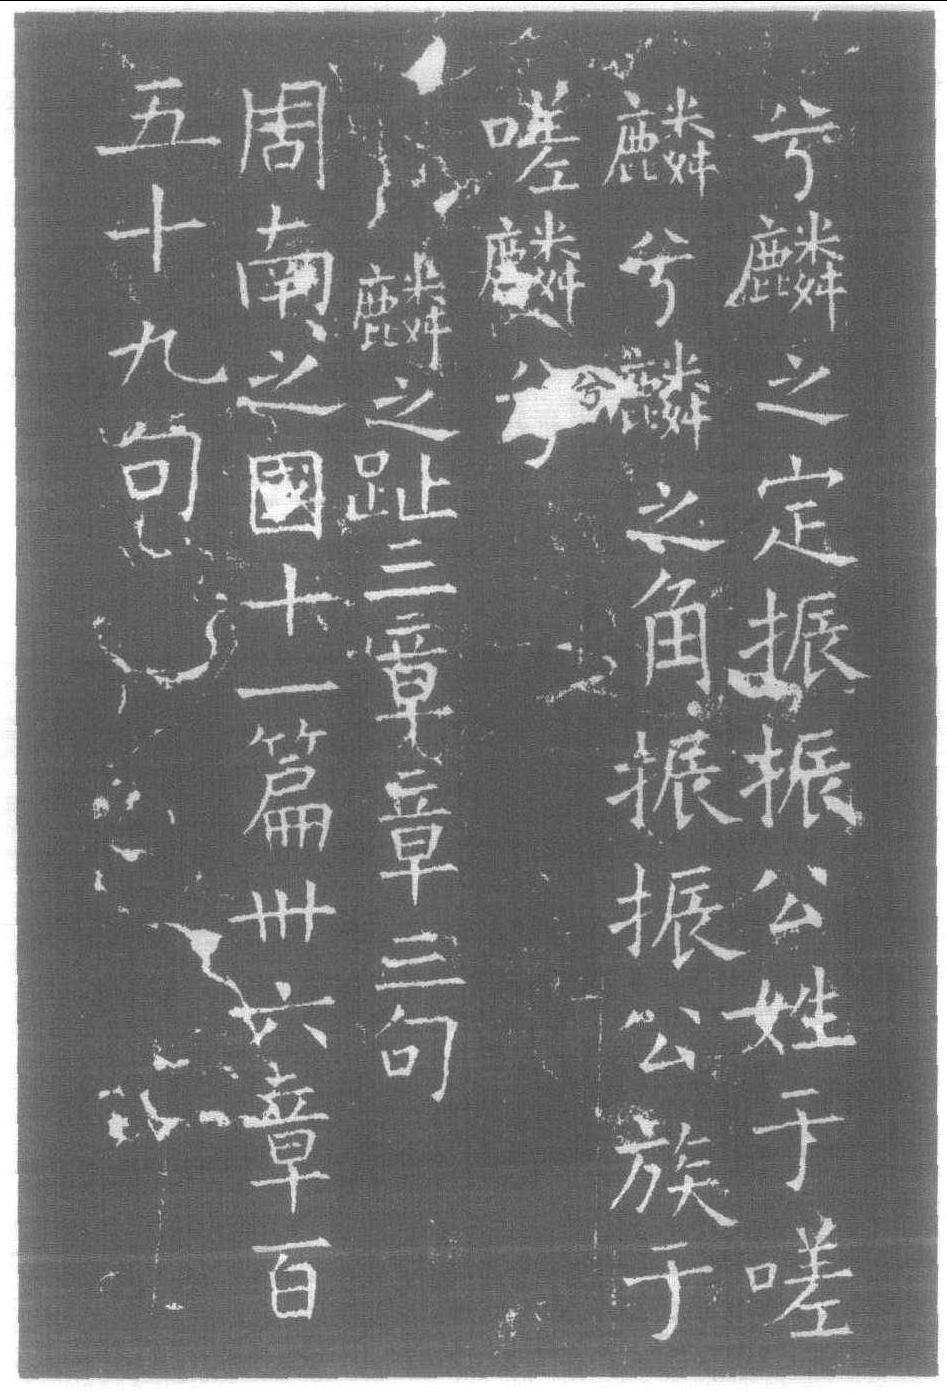 兮麟之定振振公姓于嗟
麟兮麟之角振振公族于
嗟麟兮
兮
麟之趾三章章三句
周南之國十一篇卅六章百
五十九句